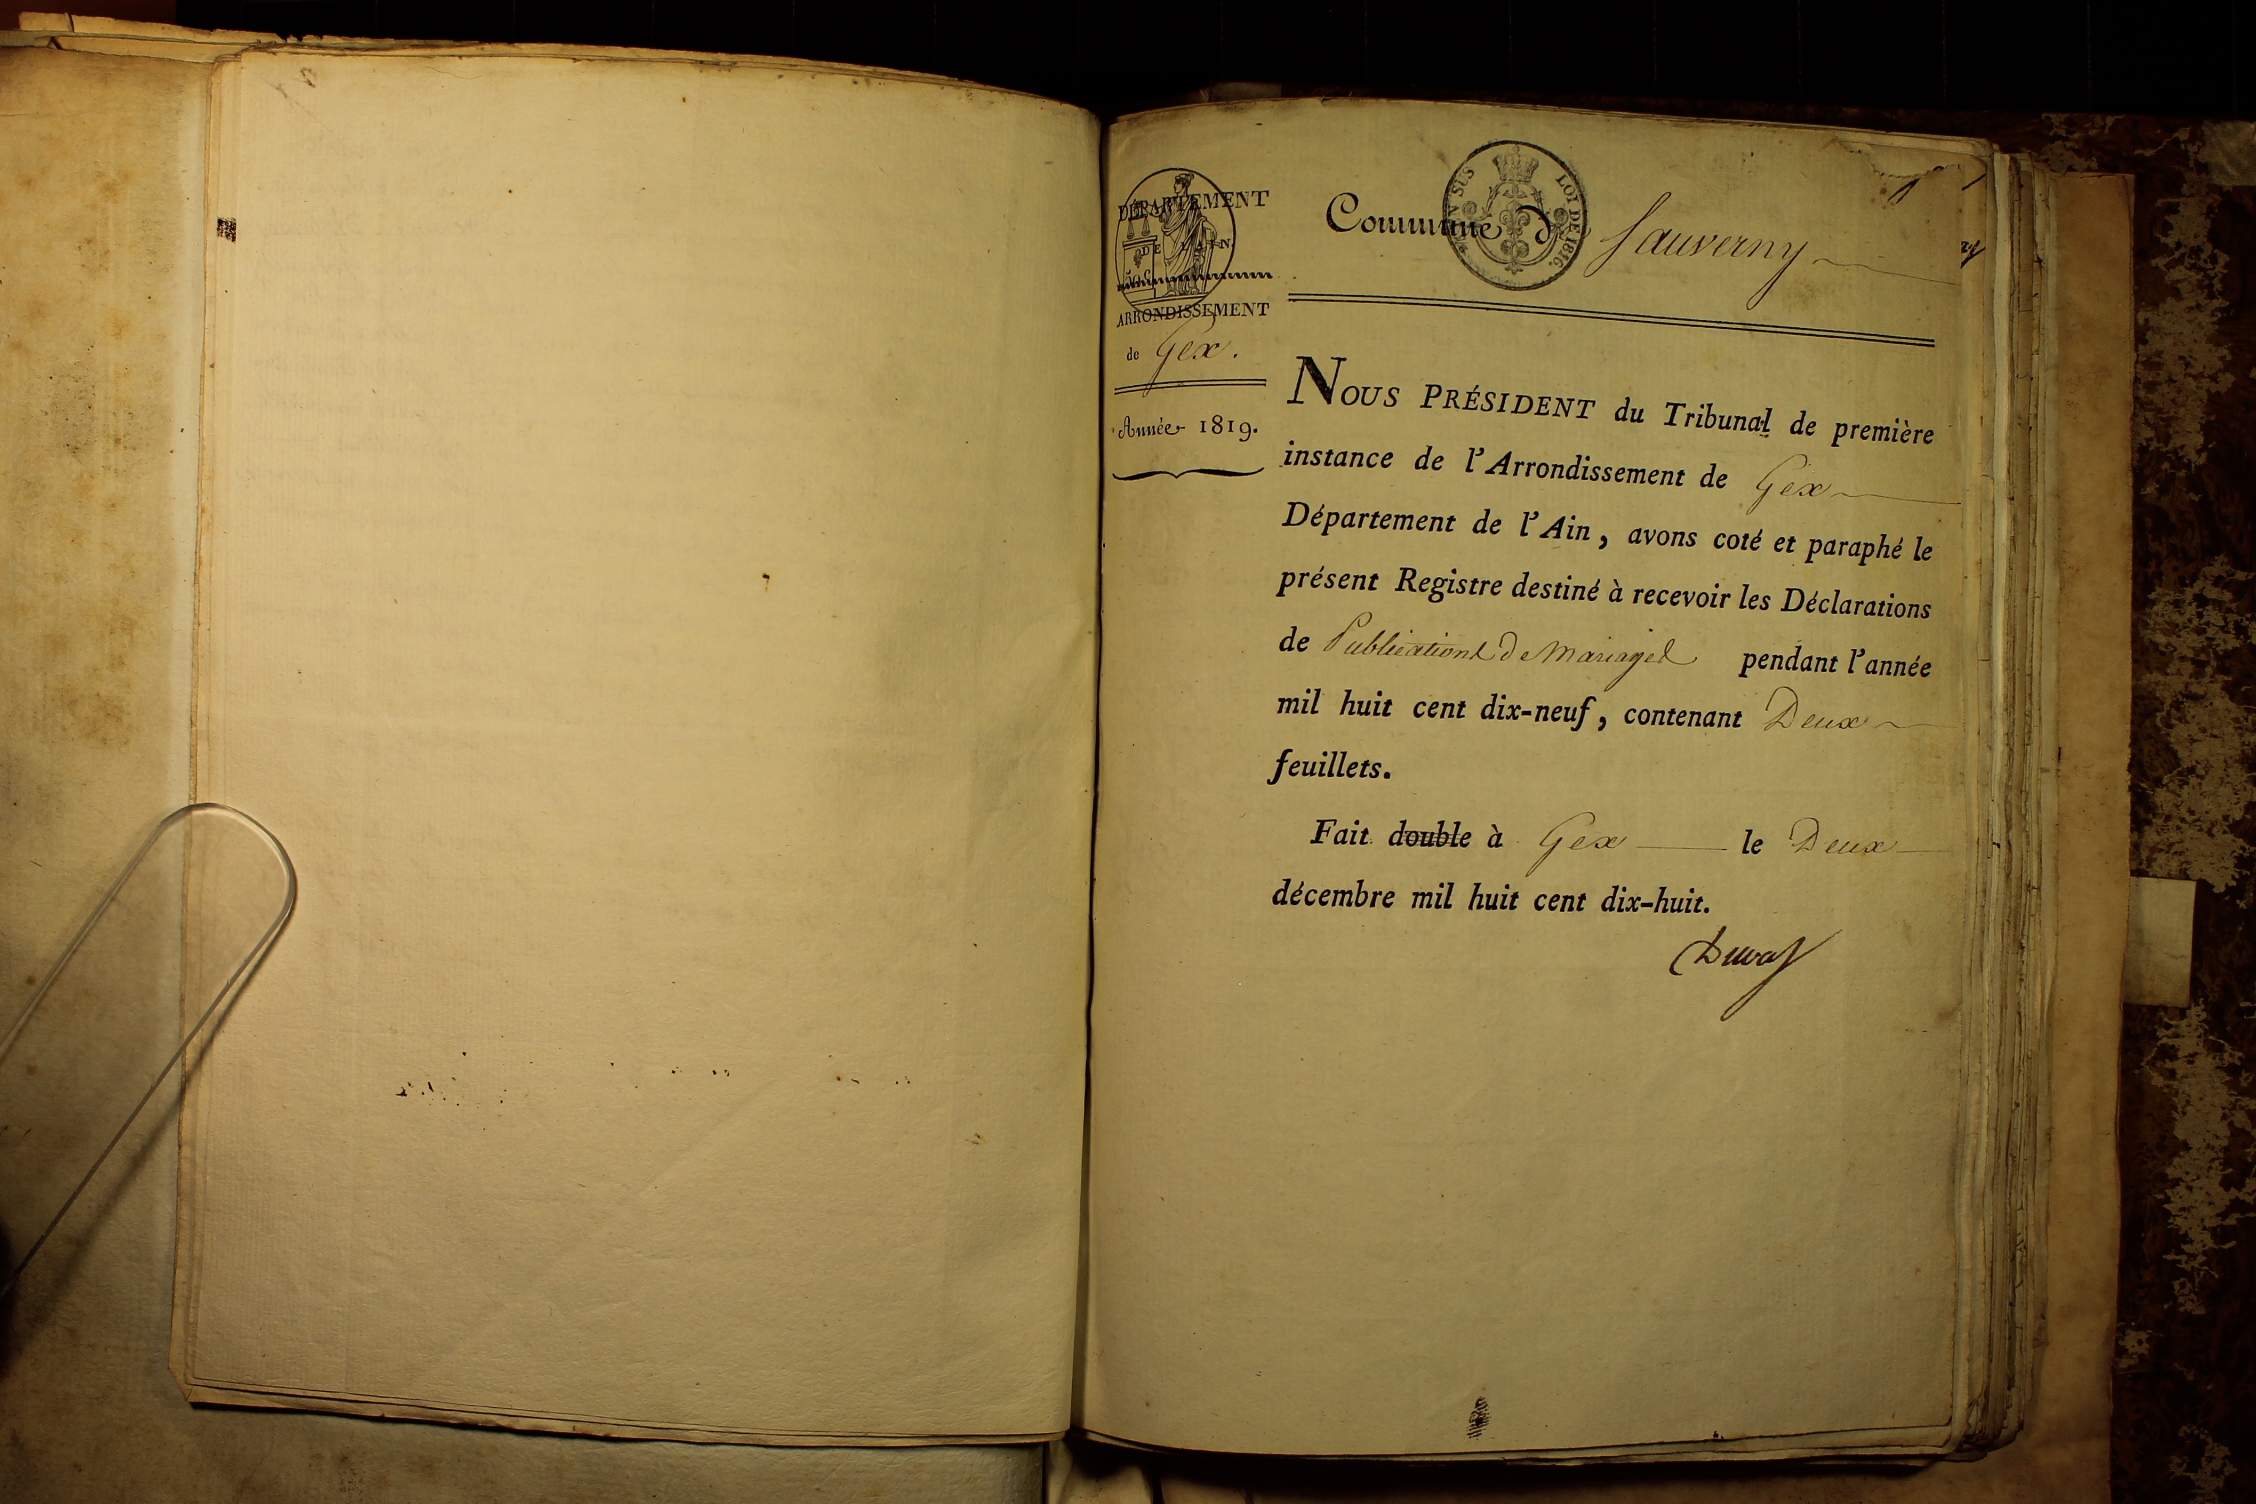 DÉPARTEMENT
DE L'AIN.
50 C
ARRONDISSEMENT
de Gex.
Année 1819.
EN SUS LOI DE 1816.
Commune d Sauverny
NOUS PRÉSIDENT du Tribunal de première
instance de l'Arrondissement de Gex
Département de l'Ain, avons coté et paraphé le
présent Registre destiné à recevoir les Déclarations
de Publications de Mariages pendant l'année
mil huit cent dix-neuf, contenant Deux
feuillets.
Fait double à Gex le Deux
décembre mil huit cent dix-huit.
Duval